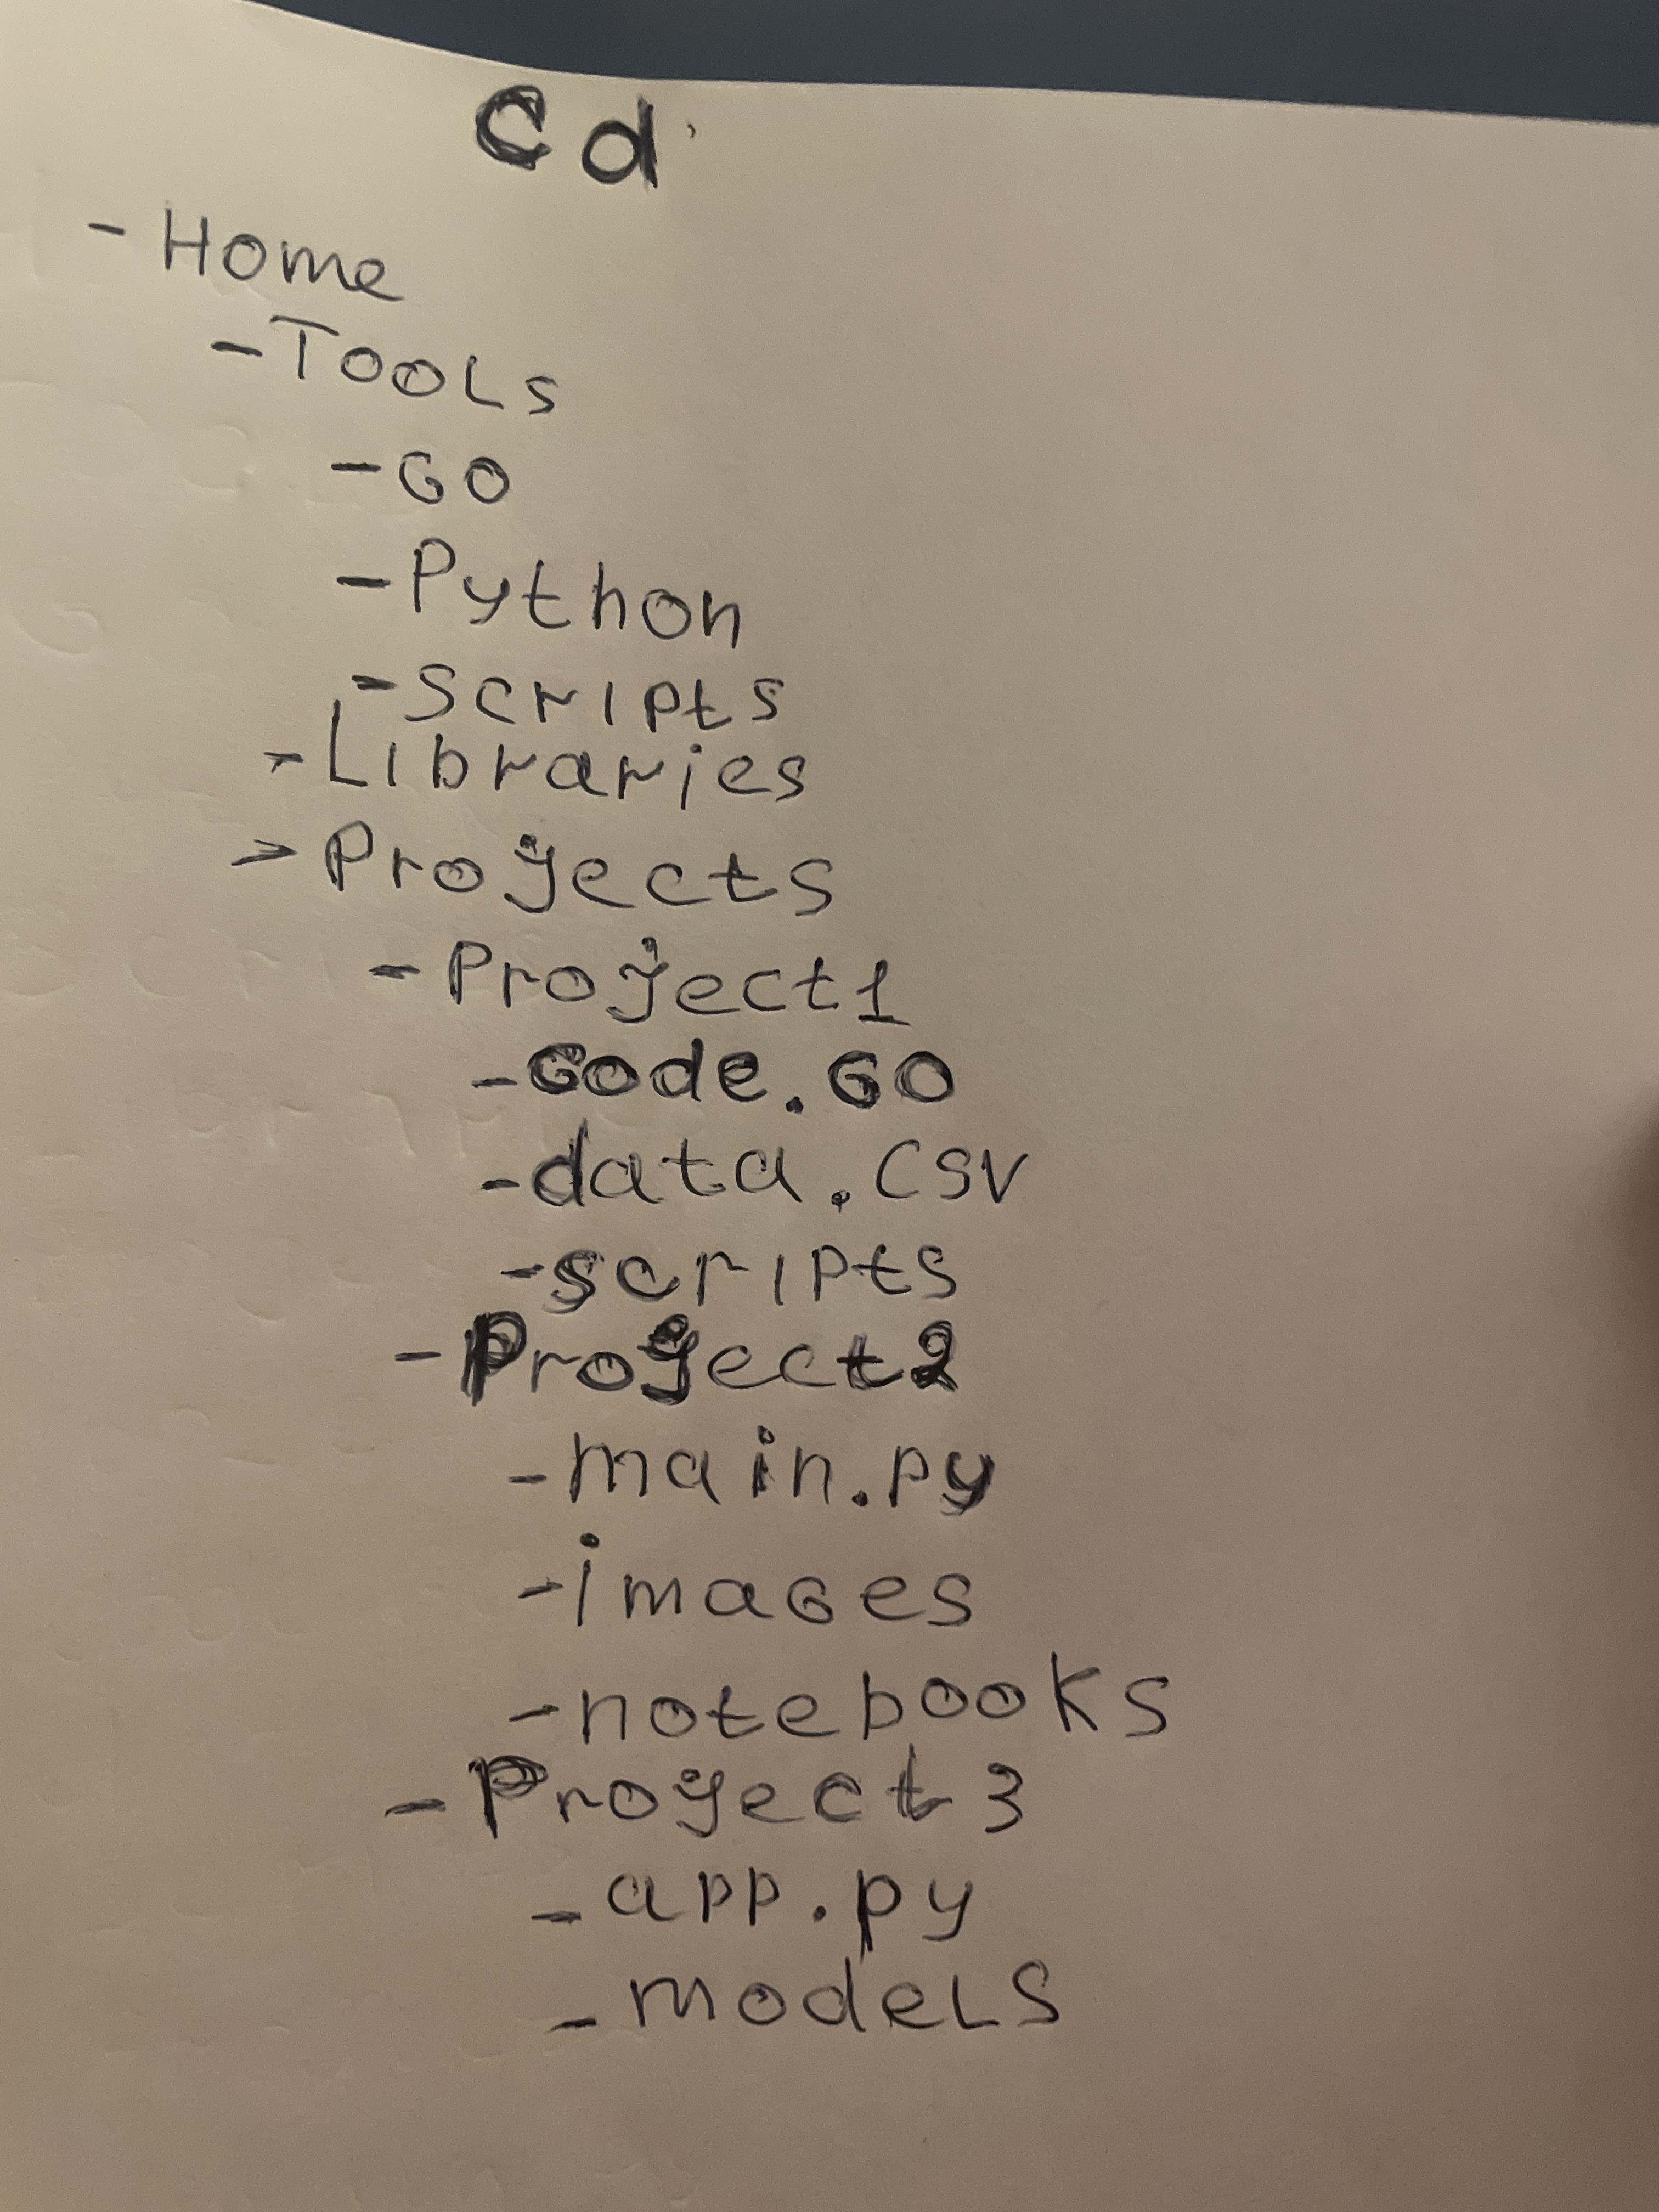 Cd
- Home
- TooLs
- GO
- Python
- scripts
- Libraries
> Projects
- Project1
- Code.GO
- data.csv
- scripts
- Project2
- main.py
- imaGes
- notebooks
- Project3
- app.py
- modeLS